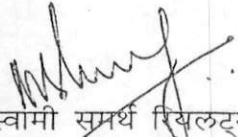 स्वामी समर्थ रियलटर्